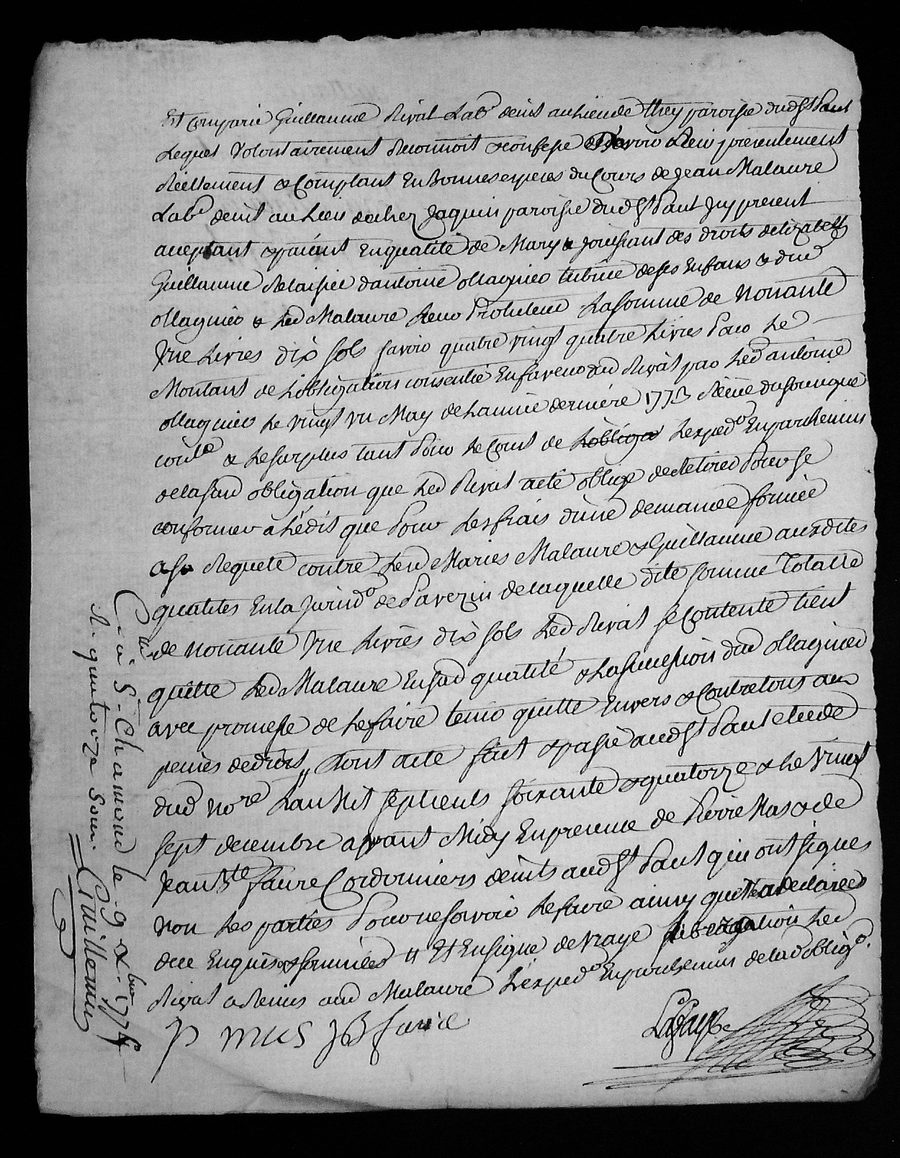 Et comparu Guillaume Rivat Lab.r dem.t au lieu de they paroisse dud St Paul
Lequel volontairement Reconnoit & confesse avoir Receu presentement
Reellement & Comptant En Bonnes especes du Cours de Jean Malaure
Lab.r dem.t au Lieu de chez Jaquin paroisse dud St Paul Jcy present
acceptant & paiant En qualité de Mary & Jouissant des droits delizabeth
Guillaume Relaissée dantoine ollagnier tutrice de ses Enfans & dud
ollagnier & Led Malaure leur Protuteur La somme de Nonante
Une Livres dix sols savoir quatre vingt quatre Livres Pour Le
Montant de Lobligation consentie En faveur dud Rivat par Led antoine
ollagnier le vingt un May de Lannée derniere 1773 Receue
& Le surplus tant Pour Le Cout de Lobliga Lexped.on En parchemin
de lasusd obligation que Led Rivat a eté obligé de Retirer Pour se
conformer a Lédit que Pour Les frais dune demande formée
a sa Requete contre Led Mariés Malaure & Guillaume auxdites
qualités En la Juridi.on de Pavezin de laquelle dite somme Totalle
de nonante Une Livres dix sols Led Rivat se Contente tient
quitte Led Malaure En sad qualité & La succession dud ollagnier
avec promesse de Le faire tenir quitte Envers & Contre tous aux
peines de droit, dont acte fait & passé aud St Paul etude
dud no.re Lan Mil sept cents soixante & quatorze & Le vingt
sept decembre avant Midy En presence de Pierre Mas & de
Jean B.te faure Cordonniers dem.ts aud St Paul qui ont signés
non Les parties Pour ne savoir Le faire ainsy quelles ont declarées
de ce Enquis & sommées // Et En signe de vraye Led
Rivat a Remis aud Malaure Lexped.on En parchemin de lad oblig.on
p mas JB faure
C.llé à St Chamond le 9 Xbre 1774
R. quatorze sous
Guillemin